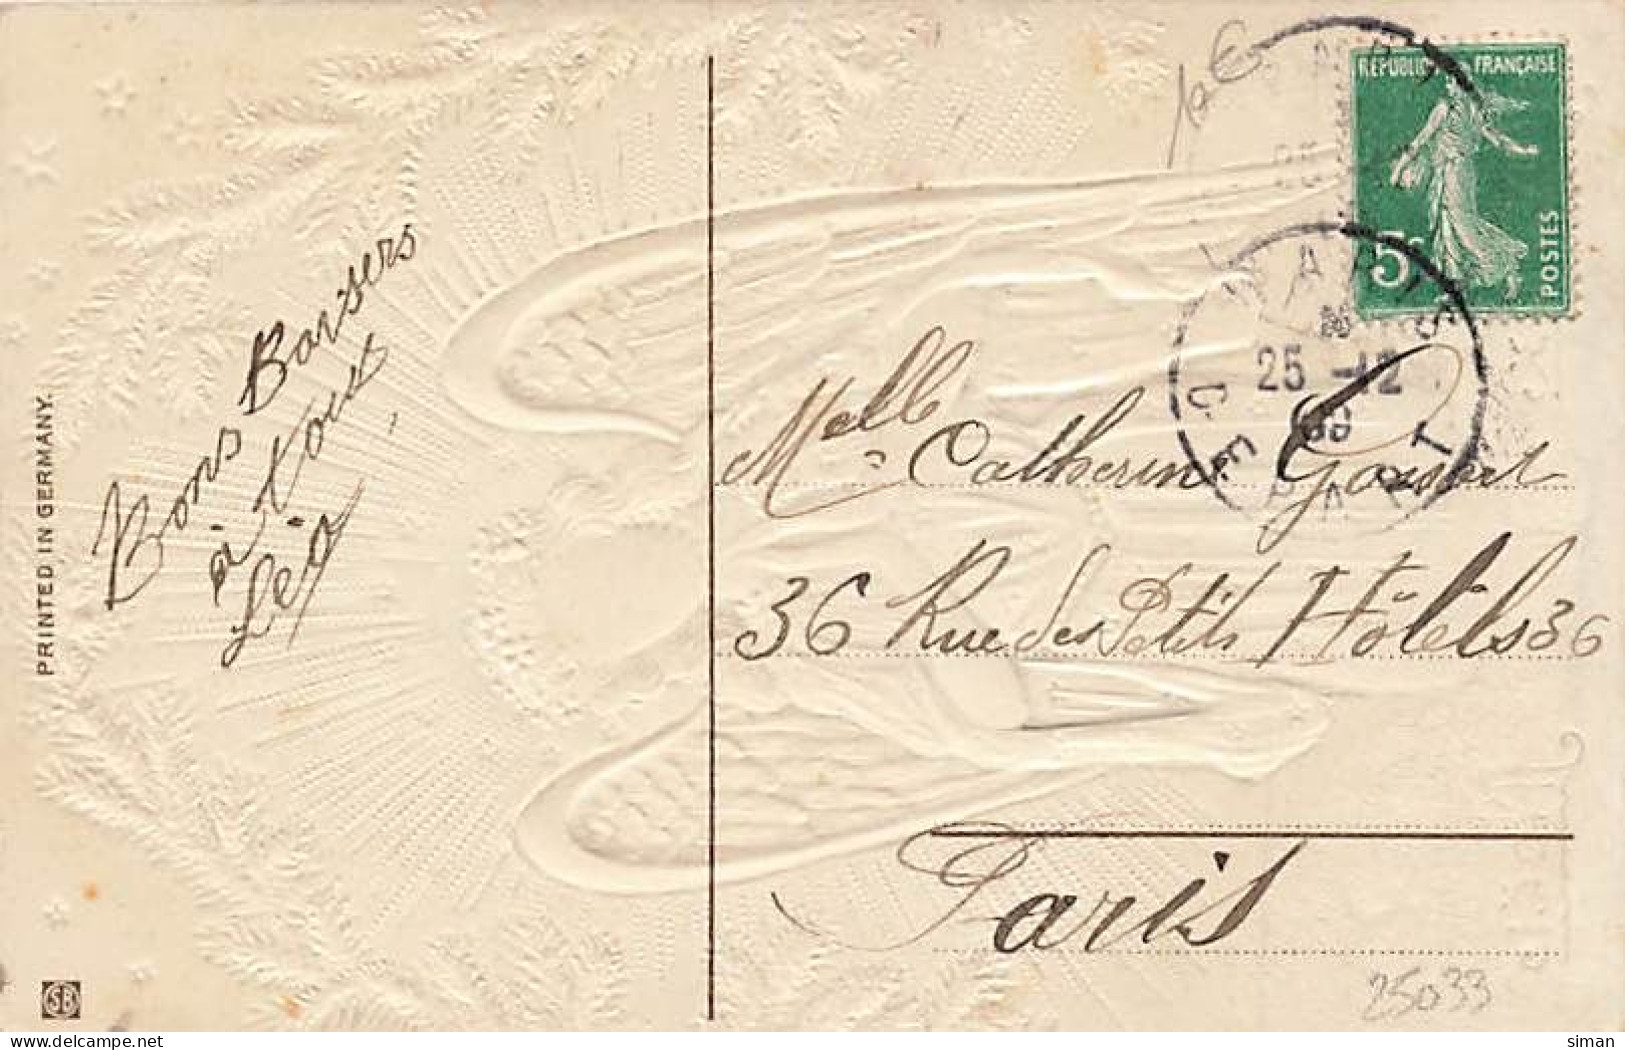 PRINTED IN GERMANY.
SB
Bons Baisers
à tous
Léo
10 €
RÉPUBLIQUE FRANÇAISE
5c
POSTES
PARIS
25 -12
09
DEPART
Melle Catherine
36 Rue des Petits Hôtels 36
Paris
25033
siman